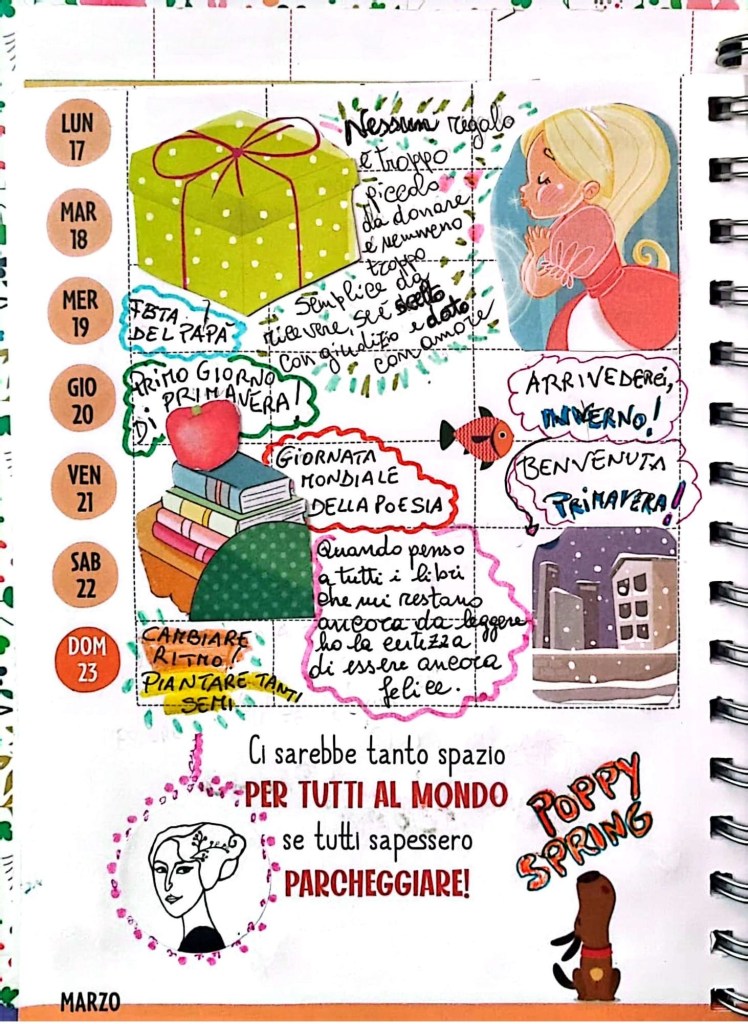 LUN
17
MAR
18
MER
19
GIO
20
VEN
21
SAB
22
DOM
23
Nessun regalo
è troppo
piccolo
da donare
e nemmeno
troppo
semplice da
ricevere, se è scelto
con giudizio e dato
con amore
FESTA
DEL PAPÀ
PRIMO GIORNO
DI PRIMAVERA!
ARRIVEDERCI,
INVERNO!
GIORNATA
MONDIALE
DELLA POESIA
BENVENUTA
PRIMAVERA!
Quando penso
a tutti i libri
che mi restano
ancora da leggere
ho la certezza
di essere ancora
felice.
CAMBIARE
RITMO!
PIANTARE TANTI
SEMI.
Ci sarebbe tanto spazio
PER TUTTI AL MONDO
se tutti sapessero
PARCHEGGIARE!
POPPY
SPRING
MARZO